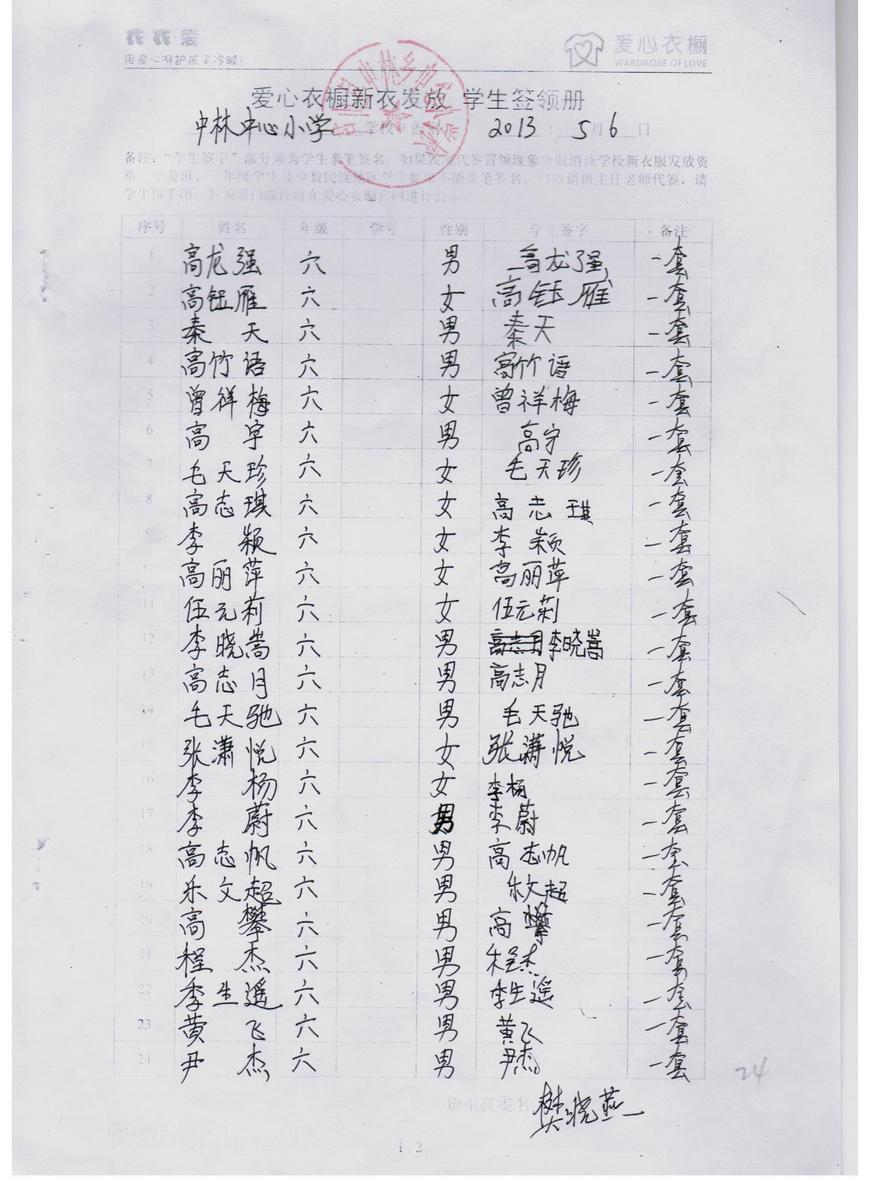 衣衣·爱
用爱心呵护孩子冷暖!
爱心衣橱
WARDROBE OF LOVE
爱心衣橱新衣发放 学生签领册
中林中心小学 学校 2013 年 5 月 6 日
备注:"学生签字"部分须为学生亲笔签名,如果发现代签冒领现象将取消该学校新衣服发放资
格。学前班、一年级学生及少数民族地区学生如果不能亲笔签名,可以请班主任老师代签,请
学生按手印。
序号 姓名 年级 学号 性别 学生签字 备注
1 高龙强 六 男 高龙强 一套
2 高钰雁 六 女 高钰雁 一套
3 秦天 六 男 秦天 一套
4 高竹语 六 男 高竹语 一套
5 曾祥梅 六 女 曾祥梅 一套
6 高宇 六 男 高宇 一套
7 毛天珍 六 女 毛天珍 一套
8 高志琪 六 女 高志琪 一套
9 李颖 六 女 李颖 一套
10 高丽萍 六 女 高丽萍 一套
11 伍元莉 六 女 伍元莉 一套
12 李晓嵩 六 男 高志月 李晓嵩 一套
13 高志月 六 男 高志月 一套
14 毛天驰 六 男 毛天驰 一套
15 张潇悦 六 女 张潇悦 一套
16 李杨 六 女 李杨 一套
17 李蔚 六 男 李蔚 一套
18 高志帆 六 男 高志帆 一套
19 乐文超 六 男 乐文超 一套
20 高攀 六 男 高攀 一套
21 程杰 六 男 程杰 一套
22 李生遥 六 男 李生遥 一套
23 黄飞 六 男 黄飞 一套
24 尹杰 六 男 尹杰 一套
24
班主任签名 樊晓燕
1/2